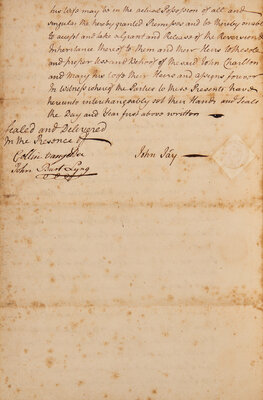 his Wife may be in the actual Possession of all and
singular the hereby granted Premises and be thereby enable
to accept and take a Grant and Release of the Reversion &
Inheritance thereof to them and their Heirs to the sole
and proper Use and Behoof of the said John Charlton
and Mary his Wife their Heirs and assigns forever
In Witness whereof the Parties to these Presents have
hereunto interchangeably set their Hands and Seals
the Day and Year first above written
Sealed and Delivered
In the Presence of
John Jay
John Bart Lyng